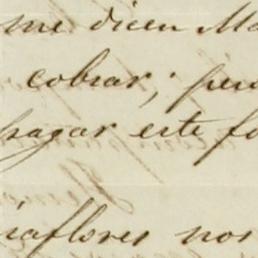 me dicen Ma
cobrar; per
pagar este fo
iaflores nor